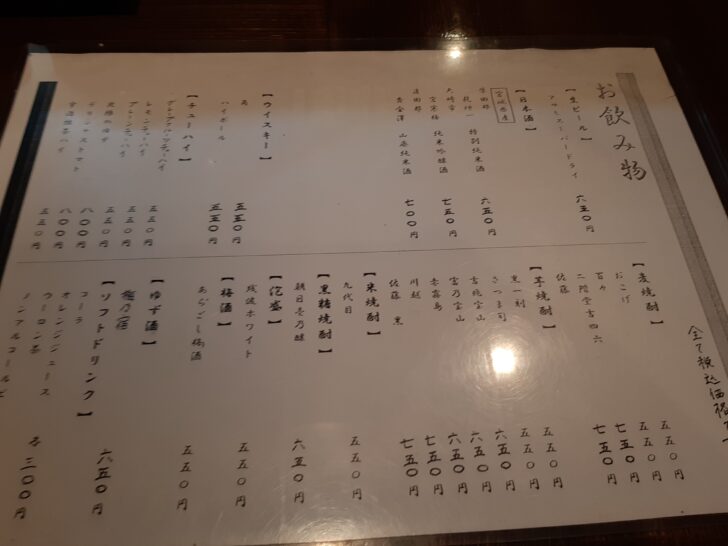 お飲み物
【生ビール】
アサヒスーパードライ 六五〇円
【日本酒】
宮城県産
特別純米酒 六五〇円
大崎市 宮寒梅 純米吟醸酒 七五〇円
黄金澤 山廃純米酒 七〇〇円
【ウイスキー】
角 五五〇円
ハイボール 五五〇円
【チューハイ】
レモンチューハイ 五五〇円
プレーンチューハイ 五五〇円
五五〇円
デリシャストマト 八〇〇円
八〇〇円
五五〇円
全て税込価格
【麦焼酎】
おこげ 五五〇円
百々 五五〇円
二階堂吉四六 七五〇円
佐藤 七五〇円
【芋焼酎】
黒一刻 五五〇円
さつま司 五五〇円
吉兆宝山 六五〇円
富乃宝山 六五〇円
赤霧島 六五〇円
川越 七五〇円
佐藤 黒 七五〇円
【米焼酎】
九代目 五五〇円
【黒糖焼酎】
朝日壱乃醸 六五〇円
【泡盛】
残波ホワイト 五五〇円
【梅酒】
あらごし梅酒 五五〇円
【ゆず酒】
梅乃宿 六五〇円
【ソフトドリンク】
コーラ
オレンジジュース
ウーロン茶
ノンアルコールビ
各 三〇〇円